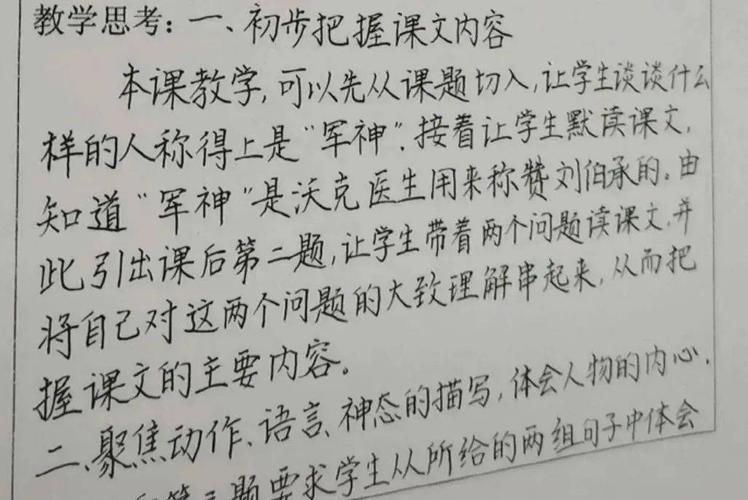 教学思考：一、初步把握课文内容
本课教学，可以先从课题切入，让学生谈谈什么
样的人称得上是“军神”。接着让学生默读课文，
知道“军神”是沃克医生用来称赞刘伯承的。由
此引出课后第二题，让学生带着两个问题读课文，并
将自己对这两个问题的大致理解串起来，从而把
握课文的主要内容。
二、聚焦动作、语言、神态的描写，体会人物的内心。
第三题要求学生从所给的两组句子中体会